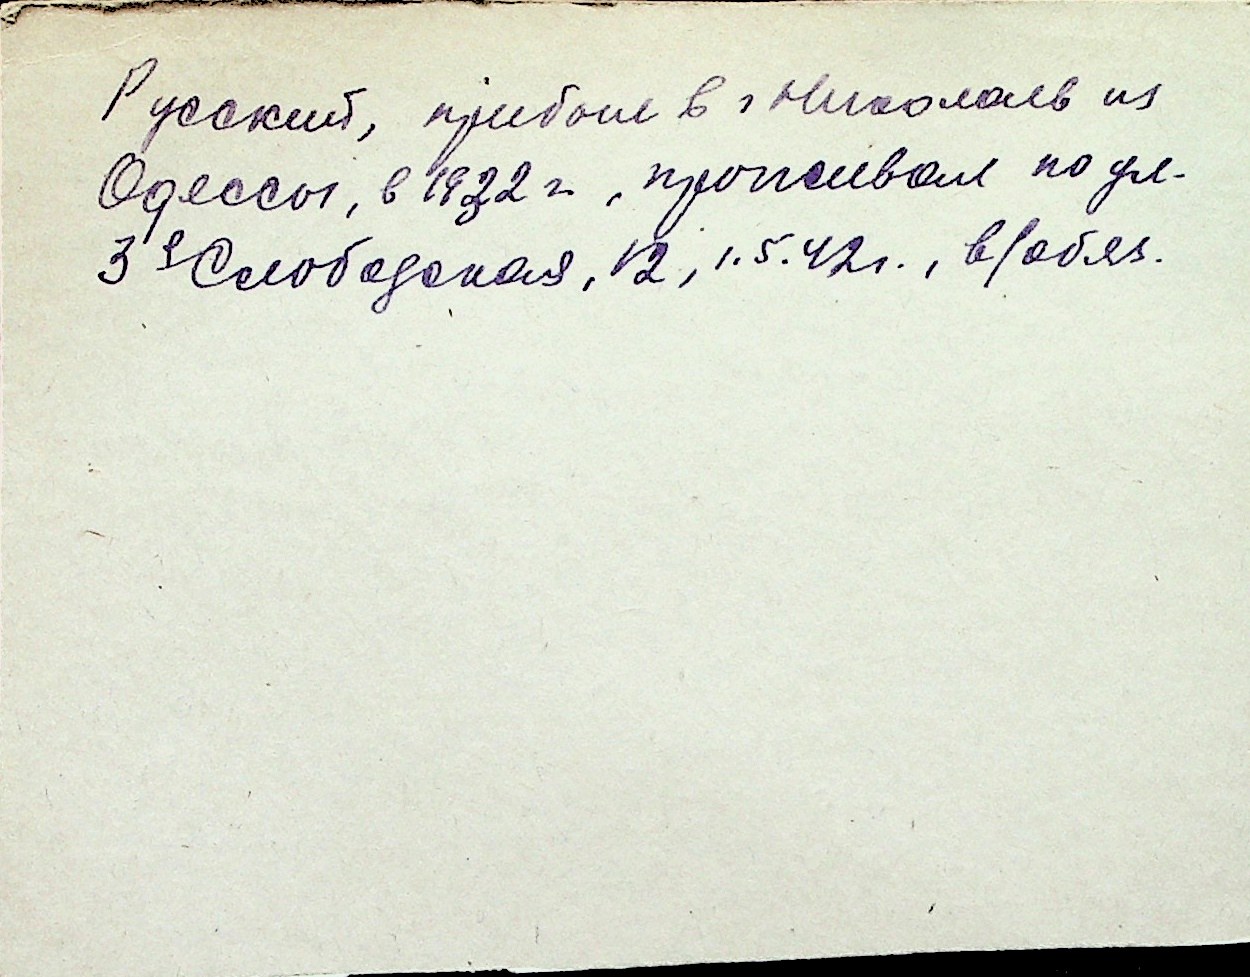 Русский, прибыл в г Николаев из
Одессы, в 1922 г., проживал по ул.
3я Слободская, 12, 1.5.42г., в/обяз.